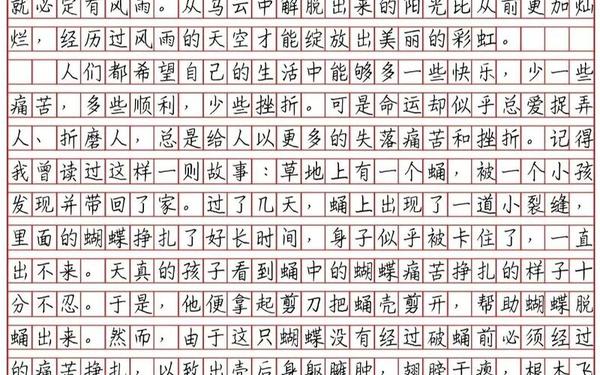 就必定有风雨。从乌云中解脱出来的阳光比从前更加灿
烂，经历过风雨的天空才能绽放出美丽的彩虹。
人们都希望自己的生活中能够多一些快乐，少一些
痛苦，多些顺利，少些挫折。可是命运却似乎总爱捉弄
人、折磨人，总是给人以更多的失落痛苦和挫折。记得
我曾读过这样一则故事：草地上有一个蛹，被一个小孩
发现并带回了家。过了几天，蛹上出现了一道小裂缝，
里面的蝴蝶挣扎了好长时间，身子似乎被卡住了，一直
出不来。天真的孩子看到蛹中的蝴蝶痛苦挣扎的样子十
分不忍。于是，他便拿起剪刀把蛹壳剪开，帮助蝴蝶脱
蛹出来。然而，由于这只蝴蝶没有经过破蛹前必须经过
的痛苦挣扎，以致出壳后身躯臃肿，翅膀干瘪，根本飞